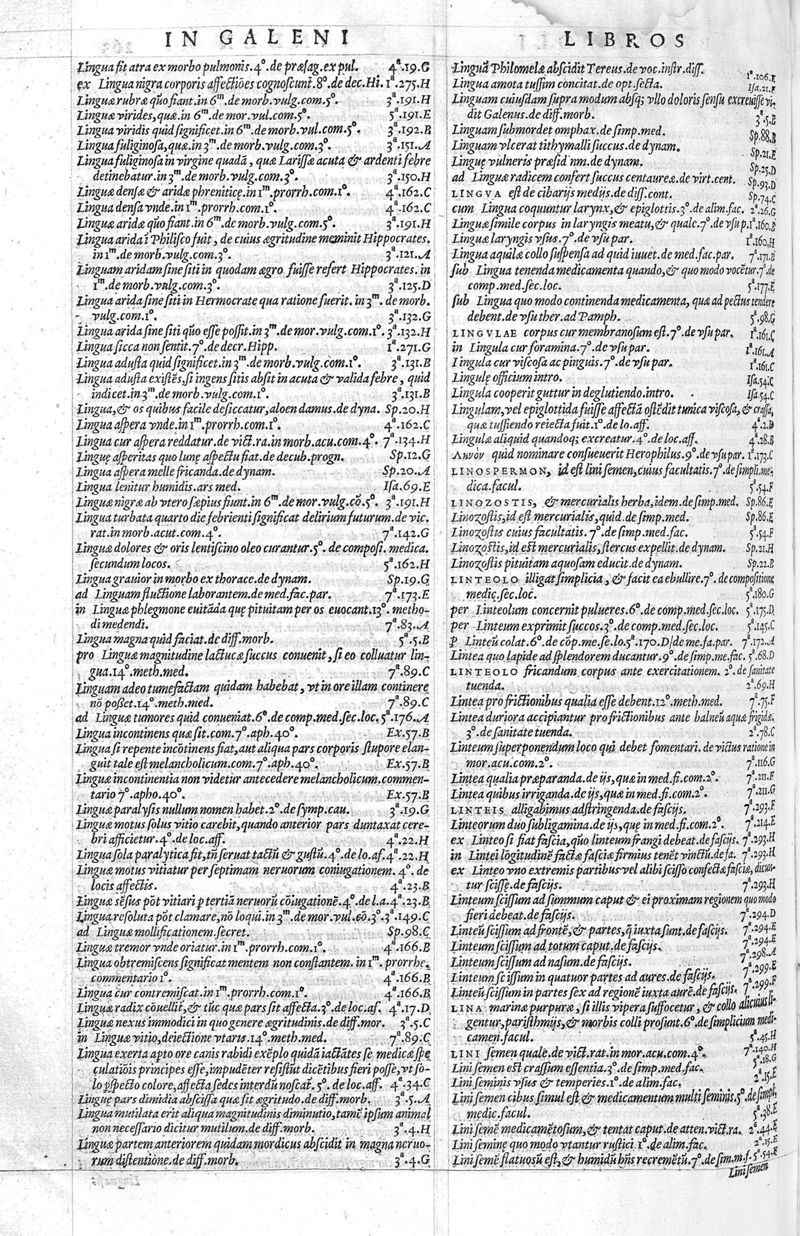 IN GALENI
Lingua fit atra ex morbo pulmonis.4º.de præsag.ex pul. 4ª.19.G
ex Lingua nigra corporis affectiões cognoscunt.8º.de dec.Hi. 1ª.275.H
Linguæ rubræ quõ fiant.in 6m.de morb.vulg.com.5º. 3ª.191.H
Linguæ virides, quæ.in 6m.de mor.vul.com.5º. 5ª.191.E
Lingua viridis quid significet.in 6m.de morb.vul.com.5º. 3ª.192.B
Lingua fuliginosa, quæ.in 3m.de morb.vulg.com.3º. 3ª.151.A
Lingua fuliginosa in virgine quadã, quæ Larissæ acuta & ardenti febre
detinebatur.in 3m.de morb.vulg.com.3º. 3ª.150.H
Linguæ densæ & aridæ phreniticę.in 1m.prorrh.com.1º. 4ª.162.C
Lingua densa vnde.in 1m.prorrh.com.1º. 4ª.162.C
Linguæ aridæ quõ fiant.in 6m.de morb.vulg.com.5º. 3ª.191.H
Lingua arida ĩ Philisco fuit, de cuius ægritudine meminit Hippocrates.
in 1m.de morb.vulg.com.3º. 3ª.121.A
Linguam aridam sine siti in quodam ægro fuisse refert Hippocrates.in
1m.de morb.vulg.com.3º. 3ª.125.D
Lingua arida sine siti in Hermocrate qua ratione fuerit.in 3m.de morb.
vulg.com.1º. 3ª.132.G
Lingua arida sine siti quõ esse possit.in 3m.de mor.vul.com.1º. 3ª.132.H
Lingua sicca non sentit.7º.de decr.Hipp. 1ª.271.G
Lingua adusta quid significet.in 3m.de morb.vulg.com.1º. 3ª.131.B
Lingua adusta existẽs, si ingens sitis absit in acuta & valida febre, quid
indicet.in 3m.de morb.vulg.com.1º. 3ª.131.B
Lingua, & os quibus facile desiccatur, aloen damus.de dyna. Sp.20.H
Lingua aspera vnde.in 1m.prorrh.com.1º. 4ª.162.C
Lingua cur aspera reddatur.de vict.ra.in morb.acu.com.4º. 7ª.134.H
Linguę asperitas quo lunę aspectu fiat.de decub.progn. Sp.12.G
Lingua aspera melle fricanda.de dynam. Sp.20.A
Lingua lenitur humidis.ars med. Isa.69.E
Linguæ nigræ ab vtero sæpius fiunt.in 6m.de mor.vulg.cõ.5º. 3ª.191.H
Lingua turbata quarto die febrienti significat delirium futurum.de vic.
rat.in morb.acut.com.4º. 7ª.142.G
Linguæ dolores & oris lentiscino oleo curantur.5º.de composi.medica.
secundum locos. 5ª.162.H
Lingua grauior in morbo ex thorace.de dynam. Sp.19.G
ad Linguam fluctione laborantem.de med.fac.par. 7ª.173.E
in Linguæ phlegmone euitãda quę pituitam per os euocant.13º.metho-
di medendi. 7ª.83.A
Lingua magna quid faciat.de diff.morb. 5ª.5.B
pro Linguæ magnitudine lactucæ succus conuenit, si eo colluatur lin-
gua.14º.meth.med. 7ª.89.C
Linguam adeo tumefactam quidam habebat, vt in ore illam continere
nõ posset.14º.meth.med. 7ª.89.C
ad Linguæ tumores quid conueniat.6º.de comp.med.sec.loc. 5ª.176.A
Lingua incontinens quæ sit.com.7º.aph.40º. Ex.57.B
Lingua si repente incõtinens fiat, aut aliqua pars corporis stupore elan-
guit tale est melancholicum.com.7º.aph.40º. Ex.57.B
Linguæ incontinentia non videtur antecedere melancholicum.commen-
tario 7º.apho.40º. Ex.57.B
Linguæ paralysis nullum nomen habet.2º.de symp.cau. 3ª.19.G
Linguæ motus solus vitio carebit, quando anterior pars duntaxat cere-
bri afficietur.4º.de loc.aff. 4ª.22.H
Lingua sola paralytica fit, tñ seruat tactũ & gustũ.4º.de lo.af. 4ª.22.H
Linguæ motus vitiatur per septimam neruorum coniugationem.4º.de
locis affectis. 4ª.23.B
Linguæ sẽsus põt vitiari ꝑ tertiã neruorũ cõiugationẽ.4º.de l.a. 4ª.23.B
Lingua resoluta põt clamare, nõ loqui.in 3m.de mor.vul.cõ.3º. 3ª.149.C
ad Linguæ mollificationem.secret. Sp.98.C
Linguæ tremor vnde oriatur.in 1m.prorrh.com.1º. 4ª.166.B
Lingua obtremiscens significat mentem non constantem.in 1m.prorrhe.
commentario 1º. 4ª.166.B
Lingua cur contremiscat.in 1m.prorrh.com.1º. 4ª.166.B
Linguæ radix cõuellit, & tũc quæ pars sit affecta.3º.de loc.af. 4ª.17.D
Linguæ nexus immodici in quo genere ægritudinis.de diff.mor. 3ª.5.C
in Linguæ vitio, deiectione vtaris.14º.meth.med. 7ª.89.C
Lingua exerta apto ore canis rabidi exẽplo quidã iactãtes se medicæ spe
culatiõis principes esse, impudẽter resistũt dicẽtibus fieri posse, vt so-
lo ꝓspecto colore, affecta sedes interdũ noscat.5º.de loc.aff. 4ª.34.C
Linguę pars dimidia abscissa quæ sit ægritudo.de diff.morb. 3ª.5.A
Lingua mutilata erit aliqua magnitudinis diminutio, tamẽ ipsum animal
non necessario dicitur mutilum.de diff.morb. 3ª.4.H
Linguæ partem anteriorem quidam mordicus abscidit in magna neruo-
rum distentione.de diff.morb. 3ª.4.G
LIBROS
Linguã Philomelæ abscidit Tereus.de voc.instr.diss. 1ª.106.F
Lingua amota tussim concitat.de opt.secta. Isa.21.F
Linguam cuiusdam supra modum absq; vllo doloris sensu excreuisse vi-
dit Galenus.de diff.morb. 3ª.5.B
Linguam submordet omphax.de simp.med. Sp.88.B
Linguam vlcerat tithymalli succus.de dynam. Sp.21.E
Linguę vulneris præsid nm.de dynam. Sp.25.D
ad Linguæ radicem confert succus centaureæ.de virt.cent. Sp.93.D
LINGVA est de cibarijs medijs.de diss.cont. Sp.74.C
cum Lingua coquuntur larynx, & epiglottis.3º.de alim.fac. 2ª.26.G
Linguæ simile corpus in laryngis meatu, & quale.7º.de vsu p. 1ª.160.B
Linguæ laryngis vsus.7º.de vsu par. 1ª.160.H
Lingua aquilæ collo suspensa ad quid iuuet.de med.fac.par. 7ª.171.B
sub Lingua tenenda medicamenta quando, & quo modo vocẽtur.7º.de
comp.med.sec.loc. 5ª.177.E
sub Lingua quo modo continenda medicamenta, quæ ad pectus tendere
debent.de vsu ther.ad Pamph. 5ª.98.G
LINGVLAE corpus cur membranosum est.7º.de vsu par. 1ª.161.C
in Lingula cur foramina.7º.de vsu par. 1ª.161.A
Lingula cur viscosa ac pinguis.7º.de vsu par. 1ª.161.C
Lingulę officium.intro. Isa.54.C
Lingula cooperit guttur in deglutiendo.intro. Isa.54.C
Lingulam, vel epiglottida fuisse affectã ostẽdit tunica viscosa, & crassa,
quæ tussiendo reiecta fuit.1º.de lo.aff. 4ª.2.D
Lingulæ aliquid quandoq; excreatur.4º.de loc.aff. 4ª.28.B
Ληνὸν quid nominare consueuerit Herophilus.9º.de vsu par. 1ª.173.C
LINOSPERMON, id est lini semen, cuius facultatis.7º.de simpli.me-
dica.facul. 5ª.54.F
LINOZOSTIS, & mercurialis herba, idem.de simp.med. Sp.86.E
Linozostis, id est mercurialis, quid.de simp.med. Sp.86.E
Linozostis cuius facultatis.7º.de simp.med.fac. 5ª.54.F
Linozostis, id est mercurialis, stercus expellit.de dynam. Sp.21.H
Linozostis pituitam aquosam educit.de dynam. Sp.22.B
LINTEOLO illigat simplicia, & facit ea ebullire.7º.de compositione
medic.sec.loc. 5ª.180.G
per Linteolum concernit pulueres.6º.de comp.med.sec.loc. 5ª.175.D
per Linteum exprimit succos.3º.de comp.med.sec.loc. 5ª.145.C
ꝑ Linteũ colat.6º.de cõp.me.se.lo.5ª.170.D/de me.fa.par. 7ª.172.A
Lintea quo lapide ad splendorem ducantur.9º.de simp.me.fac. 5ª.68.D
LINTEOLO fricandum corpus ante exercitationem.2º.de sanitate
tuenda. 2ª.69.H
Lintea pro frictionibus qualia esse debent.12º.meth.med. 7ª.75.F
Lintea duriora accipiantur pro frictionibus ante balneũ aquæ frigidæ.
3º.de sanitate tuenda. 2ª.78.C
Linteum superponendum loco qui debet fomentari.de victus ratione in
mor.acu.com.2º. 7ª.116.G
Lintea qualia præparanda.de ijs, quæ in med.fi.com.2º. 7ª.211.F
Lintea quibus irriganda.de ijs, quæ in med.fi.com.2º. 7ª.211.G
LINTEIS alligabimus adstringenda.de fascijs. 7ª.293.F
Linteorum duo subligamina.de ijs, quę in med.fi.com.2º. 7ª.214.E
ex Linteo si fiat fascia, quõ linteum frangi debeat.de fascijs. 7ª.293.H
in Lintei lõgitudinẽ factæ fasciæ firmius tenẽt vinctũ.de fa. 7ª.293.H
ex Linteo vno extremis partibus vel alibi scisso confectæ fasciæ, dicun-
tur scissę.de fascijs. 7ª.293.H
Linteum scissum ad summum caput & ei proximam regionem quo modo
fieri debeat.de fascijs. 7ª.294.D
Linteũ scissum ad frontẽ, & partes, q̃ iuxta sunt.de fascijs. 7ª.294.E
Linteum scissum ad totum caput.de fascijs. 7ª.294.E
Linteum scissum ad nasum.de fascijs. 7ª.298.A
Linteum scissum in quatuor partes ad aures.de fascijs. 7ª.299.E
Linteũ scissum in partes sex ad regionẽ iuxta aurẽ.de fascijs. 7ª.299.F
LINA marinæ purpuræ, si illis vipera suffocetur, & collo alicuius li-
gentur, paristhmijs, & morbis colli prosunt.6º.de simplicium medi-
camen.facul. 5ª.45.H
LINI semen quale.de vict.rat.in mor.acu.com.4º. 7ª.140.H
Lini semen est crassum essentia.3º.de simp.med.fac. 5ª.18.G
Lini seminis vsus & temperies.1º.de alim.fac. 2ª.15.E
Lini semen cibus simul est & medicamentum multi seminis.5º.de simpl.
medic.facul. 5ª.38.E
Lini semẽ medicamẽtosum, & tentat caput.de atten.vict.ra. 2ª.44.E
Lini semine quo modo vtantur rustici.1º.de alim.fac. 2ª.15.E
Lini semẽ flatuosũ est, & humidũ hñs recremẽtũ.7º.de sim.m.f. 5ª.54.E
Lini semen